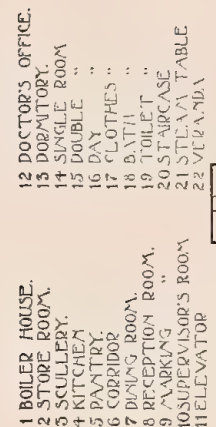 1 BOILER HOUSE.
2 STORE ROOM.
3 SCULLERY.
4 KITCHEN
5 PANTRY.
6 CORRIDOR
7 DINING ROOM.
8 RECEPTION ROOM.
9 MARKING "
10 SUPERVISOR'S ROOM
11 ELEVATOR
12 DOCTOR'S OFFICE.
13 DORMITORY.
14 SINGLE ROOM
15 DOUBLE "
16 DAY "
17 CLOTHES "
18 BATH "
19 TOILET "
20 STAIRCASE
21 STEAM TABLE
22 VERANDA